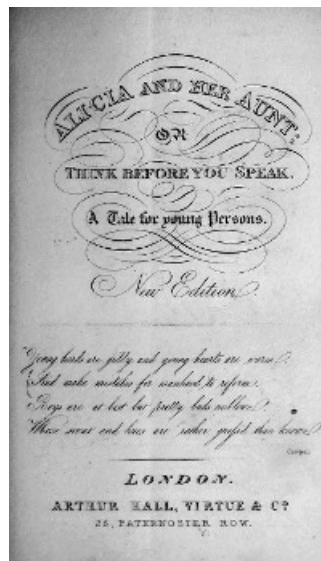 ALICIA AND HER AUNT:
OR
THINK BEFORE YOU SPEAK.
A Tale for young Persons.
New Edition.
Young heads are giddy and young hearts are warm
And make mistakes for manhood to reform.
Boys are at best but pretty buds unblown.
Whose scent and hues are rather guessed than known
Cowper.
LONDON.
ARTHUR HALL, VIRTUE & Co
25, PATERNOSTER ROW.